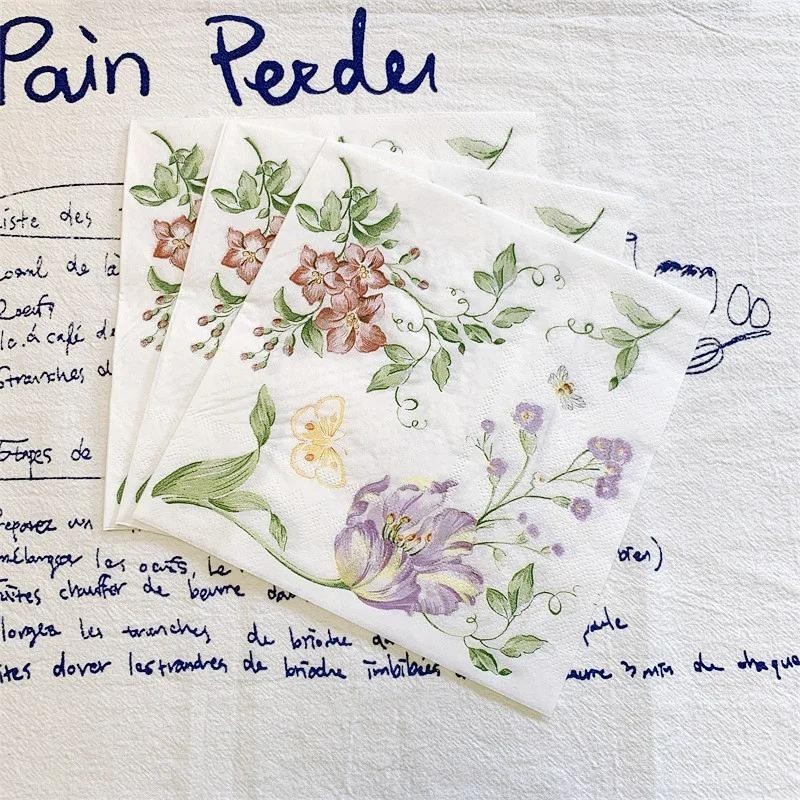 Pain Perdu
liste des
de la
Oeufs
1c. à café de
tranches d
Etapes de
réparez un
mélanger les oeufs, le
bien)
aites chauffer de beurre dan
longez les tranches de brioche da
poile
ites dorer les tranches de brioche imbibées
3 min de chaque